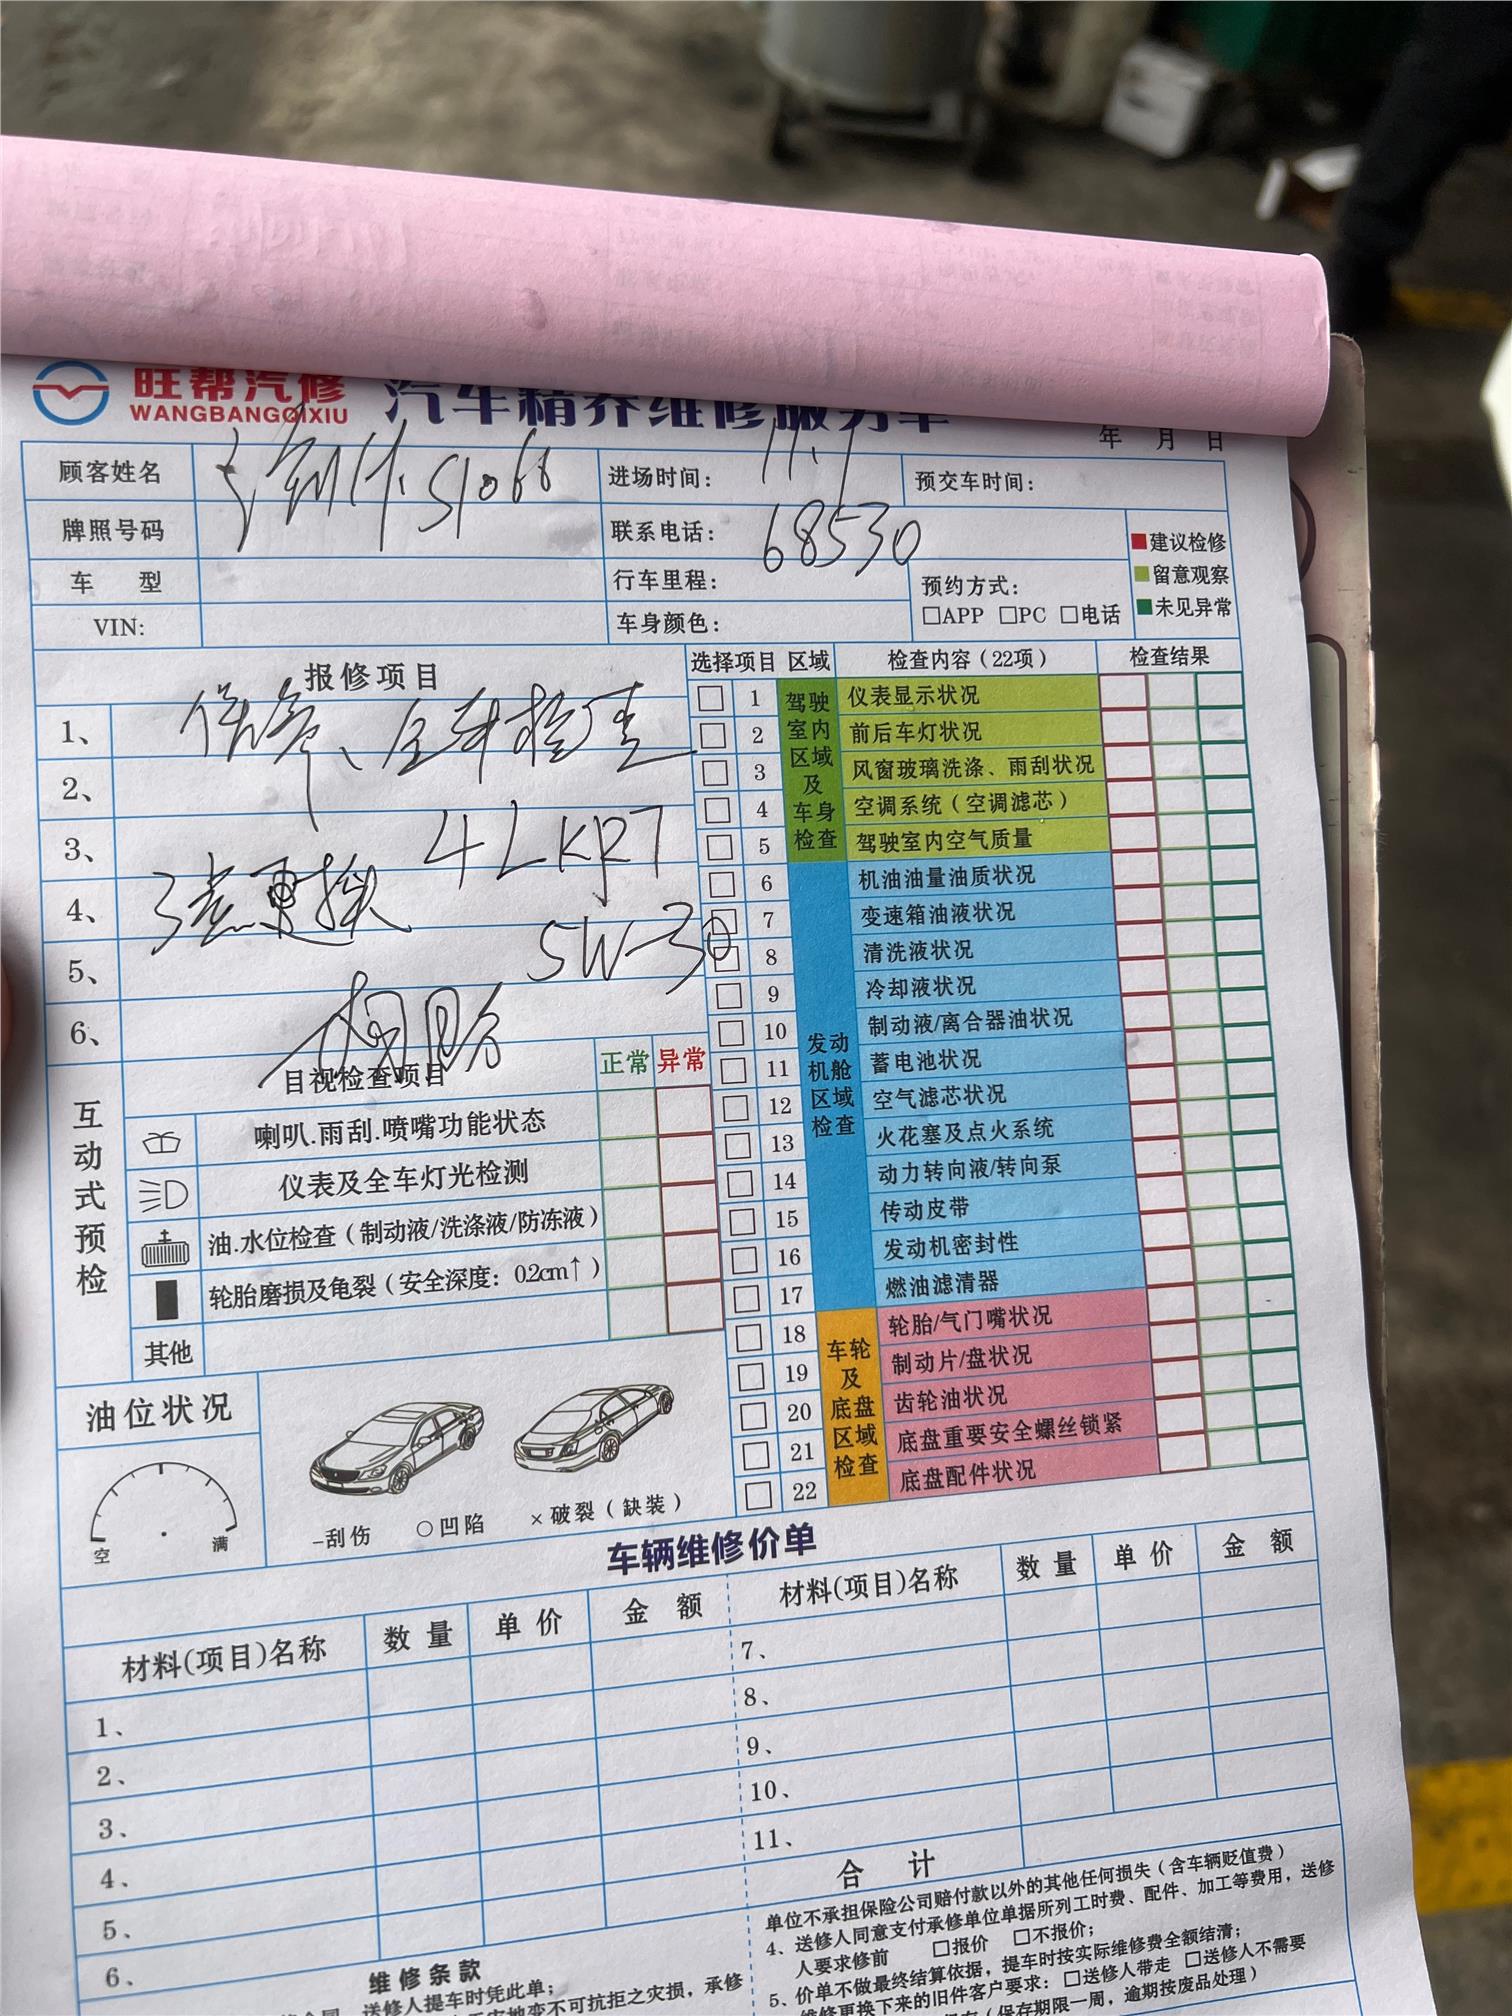 旺帮汽修
WANGBANGQIXIU
汽车精养维修服务单
年 月 日
顾客姓名
S1066
进场时间: 11.1
预交车时间:
牌照号码
联系电话:
68530
车 型
行车里程:
预约方式:
□APP □PC □电话
VIN:
车身颜色:
建议检修
留意观察
未见异常
报修项目
1、
保养、全车检查
2、
3、
4LKR7
4、
更换
5W-30
5、
6、
互动式预检
目视检查项目
正常
异常
喇叭.雨刮.喷嘴功能状态
仪表及全车灯光检测
油.水位检查(制动液/洗涤液/防冻液)
轮胎磨损及龟裂(安全深度: 0.2cm↑)
其他
油位状况
空
满
-刮伤 ○凹陷 ×破裂(缺装)
选择项目 区域 检查内容(22项) 检查结果
驾驶室内区域及车身检查
1 仪表显示状况
2 前后车灯状况
3 风窗玻璃洗涤、雨刮状况
4 空调系统(空调滤芯)
5 驾驶室内空气质量
发动机舱区域检查
6 机油油量油质状况
7 变速箱油液状况
8 清洗液状况
9 冷却液状况
10 制动液/离合器油状况
11 蓄电池状况
12 空气滤芯状况
13 火花塞及点火系统
14 动力转向液/转向泵
15 传动皮带
16 发动机密封性
17 燃油滤清器
车轮及底盘区域检查
18 轮胎/气门嘴状况
19 制动片/盘状况
20 齿轮油状况
21 底盘重要安全螺丝锁紧
22 底盘配件状况
车辆维修价单
材料(项目)名称 数量 单价 金额
1、
2、
3、
4、
5、
6、
材料(项目)名称 数量 单价 金额
7、
8、
9、
10、
11、
合 计
维修条款
送修人提车时凭此单;
不可抗拒之灾损,承修
单位不承担保险公司赔付款以外的其他任何损失(含车辆贬值费)
4、送修人同意支付承修单位单据所列工时费、配件、加工等费用,送修
人要求修前 □报价 □不报价;
5、价单不做最终结算依据,提车时按实际维修费全额结清;
维修更换下来的旧件客户要求: □送修人带走 □送修人不需要
(保存期限一周,逾期按废品处理)